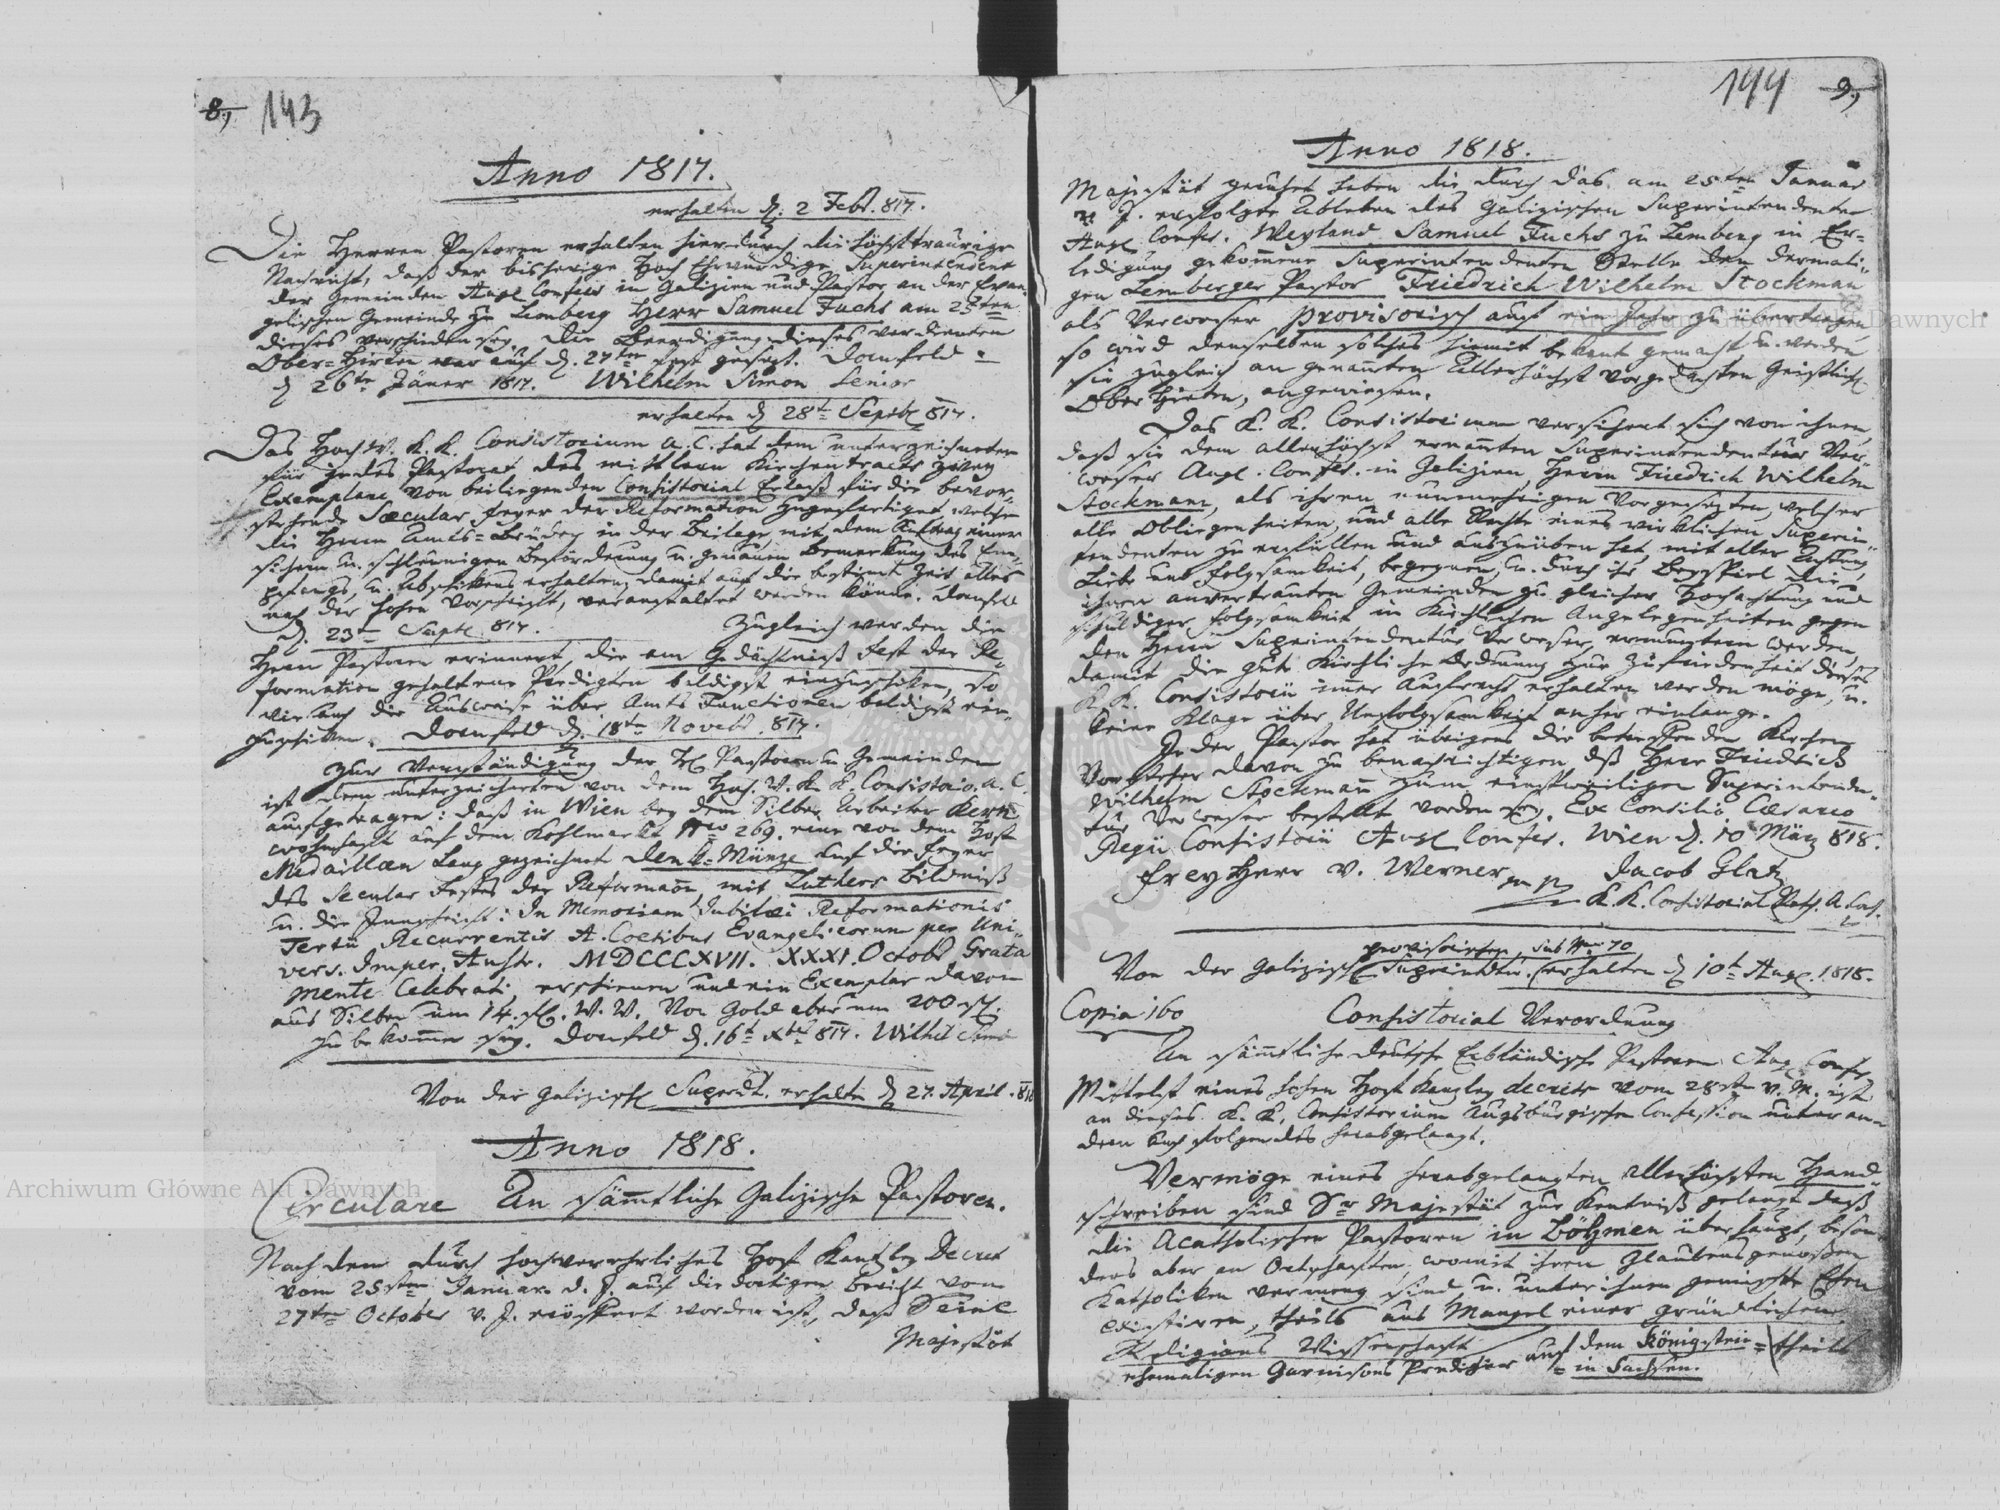 8, 143
Anno 1817.
erhalten d. 2 Febr. 817.
Die Herren Pastoren erhalten hierdurch die höchsttraurige
Nachricht, daß der bisherige Hoch Ehrwürdige Superintendent
der Gemeinden Augl Confess in Galizien und Pastor an der Evan-
gelischen Gemeinde zu Lemberg Herr Samuel Fuchs am 25ten
dieses verschieden sey. Die Beerdigung dieses verdienten
Ober-Hirten war auf d. 27ten fest gesezt. Dornfeld
d 26te Jäner 1817. Wilhelm Simon Senior
erhalten d 28t Septbr 817.
Das Hochw. K. K. Consistorium A. C. hat dem unterzeichneten
für jedes Pastorat des mittlern Kirchentracts zwey
Exemplare von beiliegenden Consistorial Erlaß für die bevor-
stehende Sæcular feyer der Reformation zugefertiget, welche
die Herrn Amts-Brüder in der Beilage mit dem Auftrag einer
sichern u. schleunigen Beförderung u. genauen Bemerkung des Em-
pfangs, u. Abschikens erhalten, damit auf die bestimte Zeit alles
nach der hohen Vorschrift, veranstaltet werden könne. Dornfeld
d. 23ten Septb. 817. Zugleich werden die
Herrn Pastoren erinnert, die am Gedächtniß Fest der Re-
formation gehaltene Predigten baldigst einzuschiken, so
wie auch die Ausweise über Amts Functionen baldigst ein-
zuschiken. Dornfeld d. 18te Novebr. 817.
Zur Verständigung der H Pastoren u Gemeinden
ist dem unterzeichneten von dem Hoh. W. K. K. Consistorio. A. C.
aufgetragen: daß in Wien bey dem Silber Arbeiter Kern
wohnhaft auf dem Kohlmarkt Nro 269. eine von dem Hof
Medaillen Lang gezeichnet Denk-Münze auf die Feyer
des Secular Festes der Reformaon, mit Luthers Bildniß
u. die Innschrift: In Memoriam Jubilæi Reformationis
Tertii Recurrentis A. Coetibus Evangelicorum per Uni-
vers. Imper. Austr. MDCCCXVII. XXXI. Octobr Grata
Mente Celebrati erschienen und ein Exemplar davon
aus Silber um 14. fl. W. W. Von Gold aber um 200 fl.
zu bekommen sey. Dornfeld d. 16t Xbr 817. Wilhel Simo
Von der Galizisch Suprdt. erhalten d 27. April. 818
Anno 1818.
Circulare An sämtliche Galizische Pastoren.
Nachdem durch hochverehrliches Hof Kanzley Decret
vom 25sten Januar d. J. auf die dortigen Bericht vom
27ten October v. J. eröffnet worden ist, daß Seine
Majestät
144 9,
Anno 1818.
Majestät geruhet haben die durch das am 25ten Januar
v. J. erfolgte Ableben des galizischen Superintendenten
Augl Confes. Weyland Samuel Fuchs zu Lemberg in Er-
ledigung gekommene Superintendenten Stelle dem dermali-
gen Lemberger Pastor Friedrich Wilhelm Stockman
als Verweser provisorisch auf ein Jahr zu übertragen
so wird denselben solches hiemit bekant gemacht u. werden
sie zugleich an genannten Allerhöchst vorgedachten Geistlich
Ober Hirten, angewiesen.
Das K. K. Consistorium versichert sich von ihnen,
daß sie dem allerhöchst ernannten Superintendentur Ver-
weser Augl. Confess. in Galizien, Herrn Friedrich Wilhelm
Stockmann, als ihren nunmehrigen Vorgesezten, welcher
alle Obliegenheiten, und alle Rechte eines wirklichen Superin-
tendenten zu erfüllen und auszuüben hat, mit aller Achtung
Liebe und folgsamkeit, begegnen, u. durch ihr Beyspiel die
ihnen anvertrauten Gemeinden zu gleicher Hochachtung und
schuldiger folgsamkeit in kirchlichen Angelegenheiten gegen
den Herrn Superintendentur Verweser, ermuntern werden,
damit die gute kirchliche Ordnung zur Zufriedenheit dieses
K. K. Consistorii immer Aufrecht erhalten werden möge, u.
keine Klage über Unfolgsamkeit anher einlange.
Jeder Pastor hat übrigens die betreffenden Kirchen
Vorsteher davon zu benachrichtigen dß Herr Friedrich
Wilhelm Stockmann zum einstweiligen Superintenden-
tur Verweser bestellt worden sey. Ex Consilio Cæsareo
Regii Consistorii Augl Confes. Wien d. 10 März 818.
Freyherr v. Werner mp Jacob Glatz
K. K. Consistorial Rath. A. Conf.
provisorischen, sub Nro 70
Von der Galizisch Supeintdtr. erhalten d 10t Aug. 1818.
Copia 160 Consistorial Verordnung
An sämmtliche deutsche Erbländische Pastoren Aug Conf
Mittelst eines hohen Hof Kanzley decrets vom 28ten v. M. ist
an dieses K. K. Consistorium Augsburgischer Confession unter an-
dern auch folgendes herabgelangt.
Vermöge eines herabgelangten Allerhöchsten Hand-
schreiben sind Sr Majestät zur Kentniß gelangt daß
die Acatholischen Pastoren in Böhmen überhaupt, beson-
ders aber an Ortschaften, womit ihren Glaubensgenoßen
Katholiken vermengt sind u. unter ihnen gemischte Ehen
existiren, theils aus Mangel einer gründlichen
Religions Wissenschaft theils
ehemaligen Garnisons Prediger auf dem Königstein
in Sachsen.
Archiwum Główne Akt Dawnych
Archiwum Główne Akt Dawnych